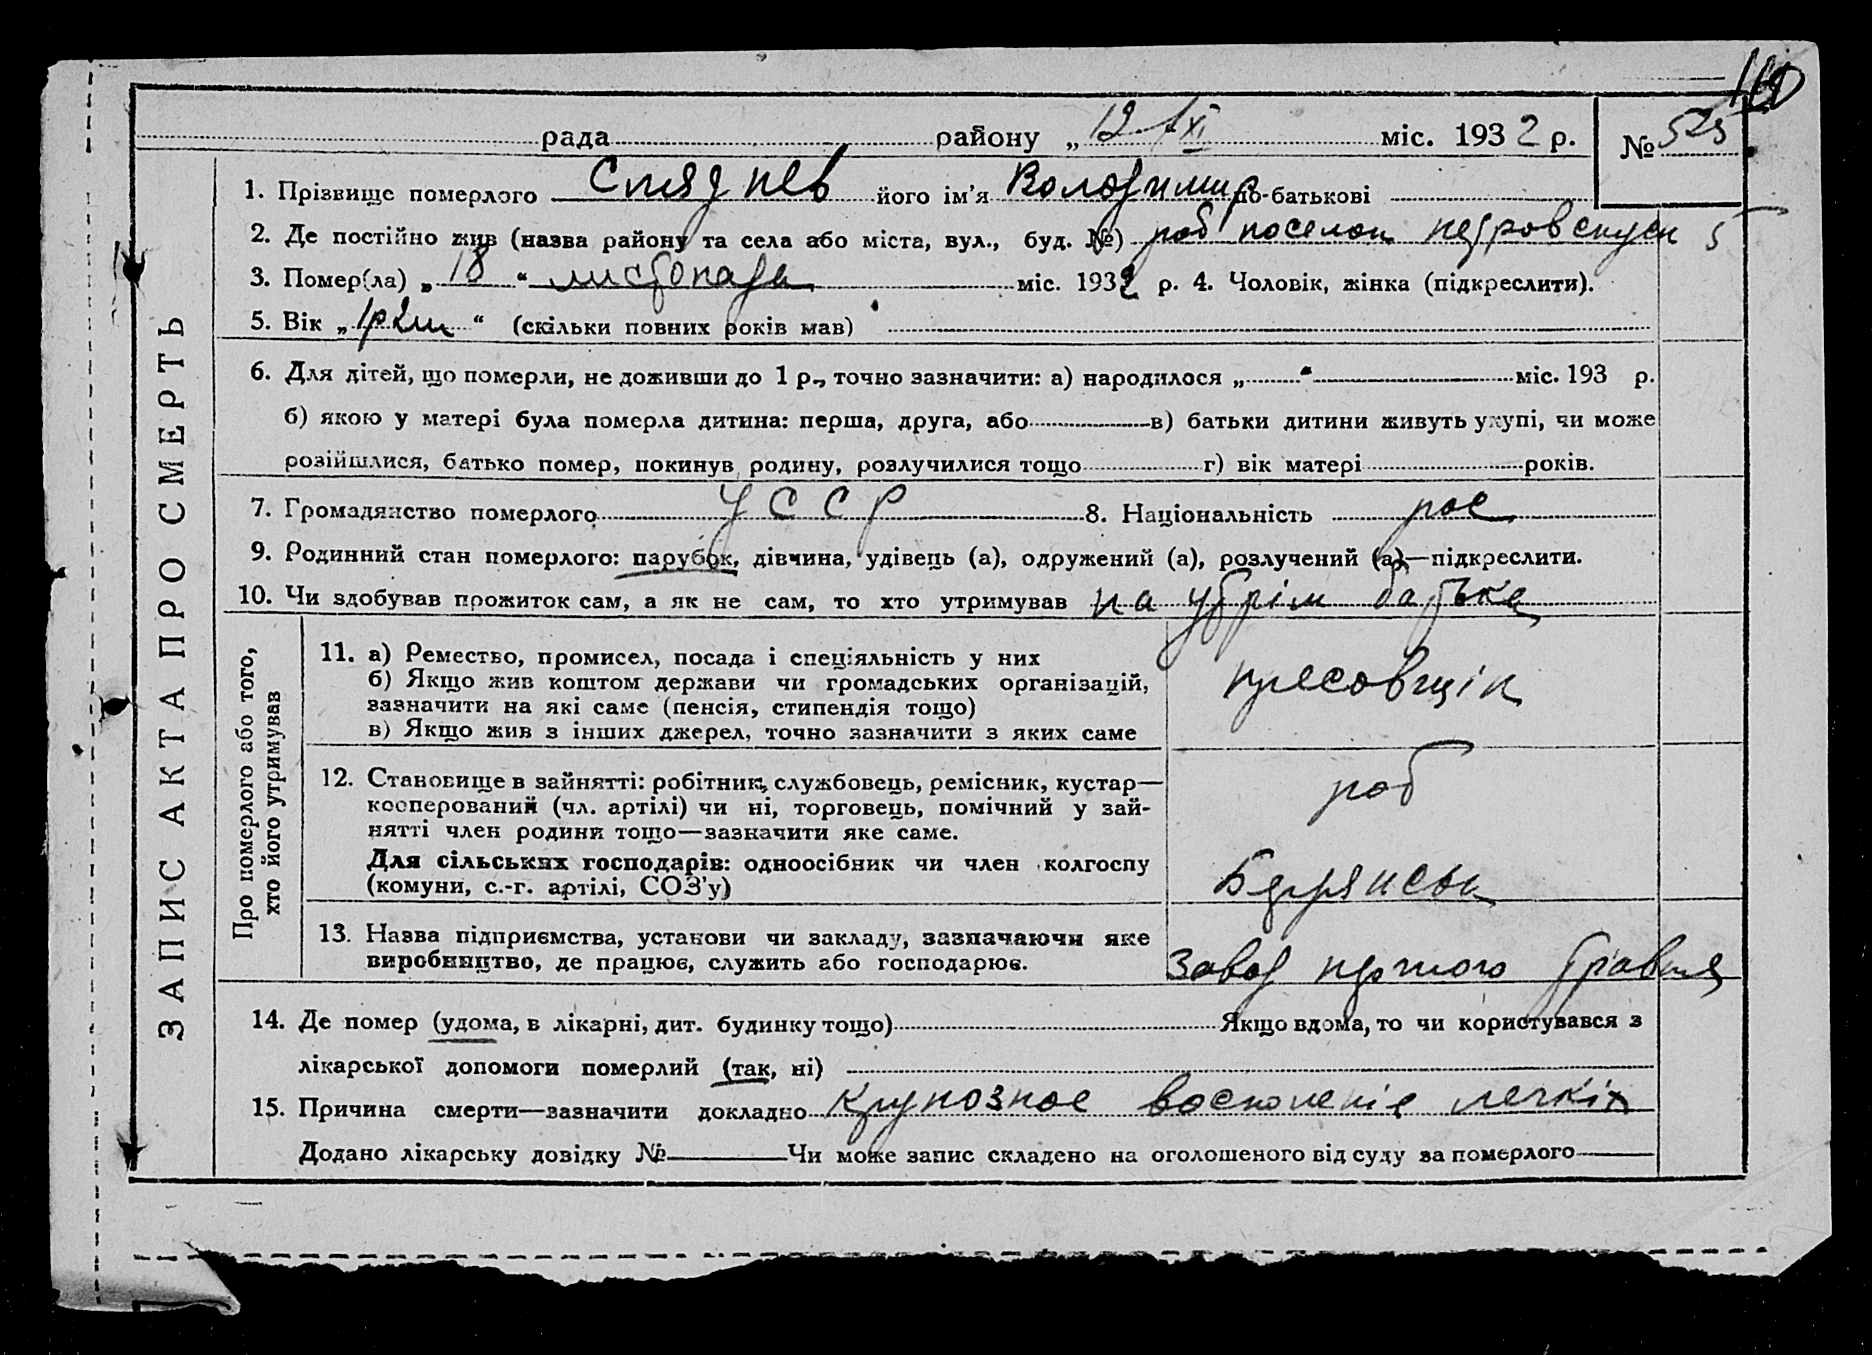 110
рада районy „ 12 / XI міс. 1932 р. № 525
1. Прізвище померлого його ім'я Володимир по-батькові
2. Де постійно жив (назва району та села або міста, вул., буд. №) роб поселок 5
3. Помер(ла) „ 18 “ листопада міс. 1932 р. 4. Чоловік, жінка (підкреслити).
5. Вік „ 1р 2м “ (скільки повних років мав)
6. Для дітей, що померли, не доживши до 1 р., точно зазначити: а) народилося „ “ міс. 193 р.
б) якою у матері була померла дитина: перша, друга, або в) батьки дитини живуть укупі, чи може
розійшлися, батько помер, покинув родину, розлучилися тощо г) вік матері років.
7. Громадянство померлого УССР 8. Національність рос
9. Родинний стан померлого: парубок, дівчина, удівець (а), одружений (а), розлучений (а)—підкреслити.
10. Чи здобував прожиток сам, а як не сам, то хто утримував на утрім батька
ЗАПИС АКТА ПРО СМЕРТЬ
Про померлого або того,
хто його утримував
11. а) Ремество, промисел, посада і спеціяльність у них
б) Якщо жив коштом держави чи громадських організацій,
зазначити на які саме (пенсія, стипендія тощо)
в) Якщо жив з інших джерел, точно зазначити з яких саме
пресовщік
12. Становище в зайнятті: робітник, службовець, ремісник, кустар—
кооперований (чл. артілі) чи ні, торговець, помічний у зай-
нятті член родини тощо—зазначити яке саме.
Для сільських господарів: одноосібник чи член колгоспу
(комуни, с.-г. артілі, СОЗ'у)
роб
13. Назва підприємства, установи чи закладу, зазначаючи яке
виробництво, де працює, служить або господарює.
завод
14. Де помер (удома, в лікарні, дит. будинку тощо) Якщо вдома, то чи користувався з
лікарської допомоги померлий (так, ні)
15. Причина смерти—зазначити докладно крупозное восполеніе легкіх
Додано лікарську довідку № Чи може запис складено на оголошеного від суду за померлого